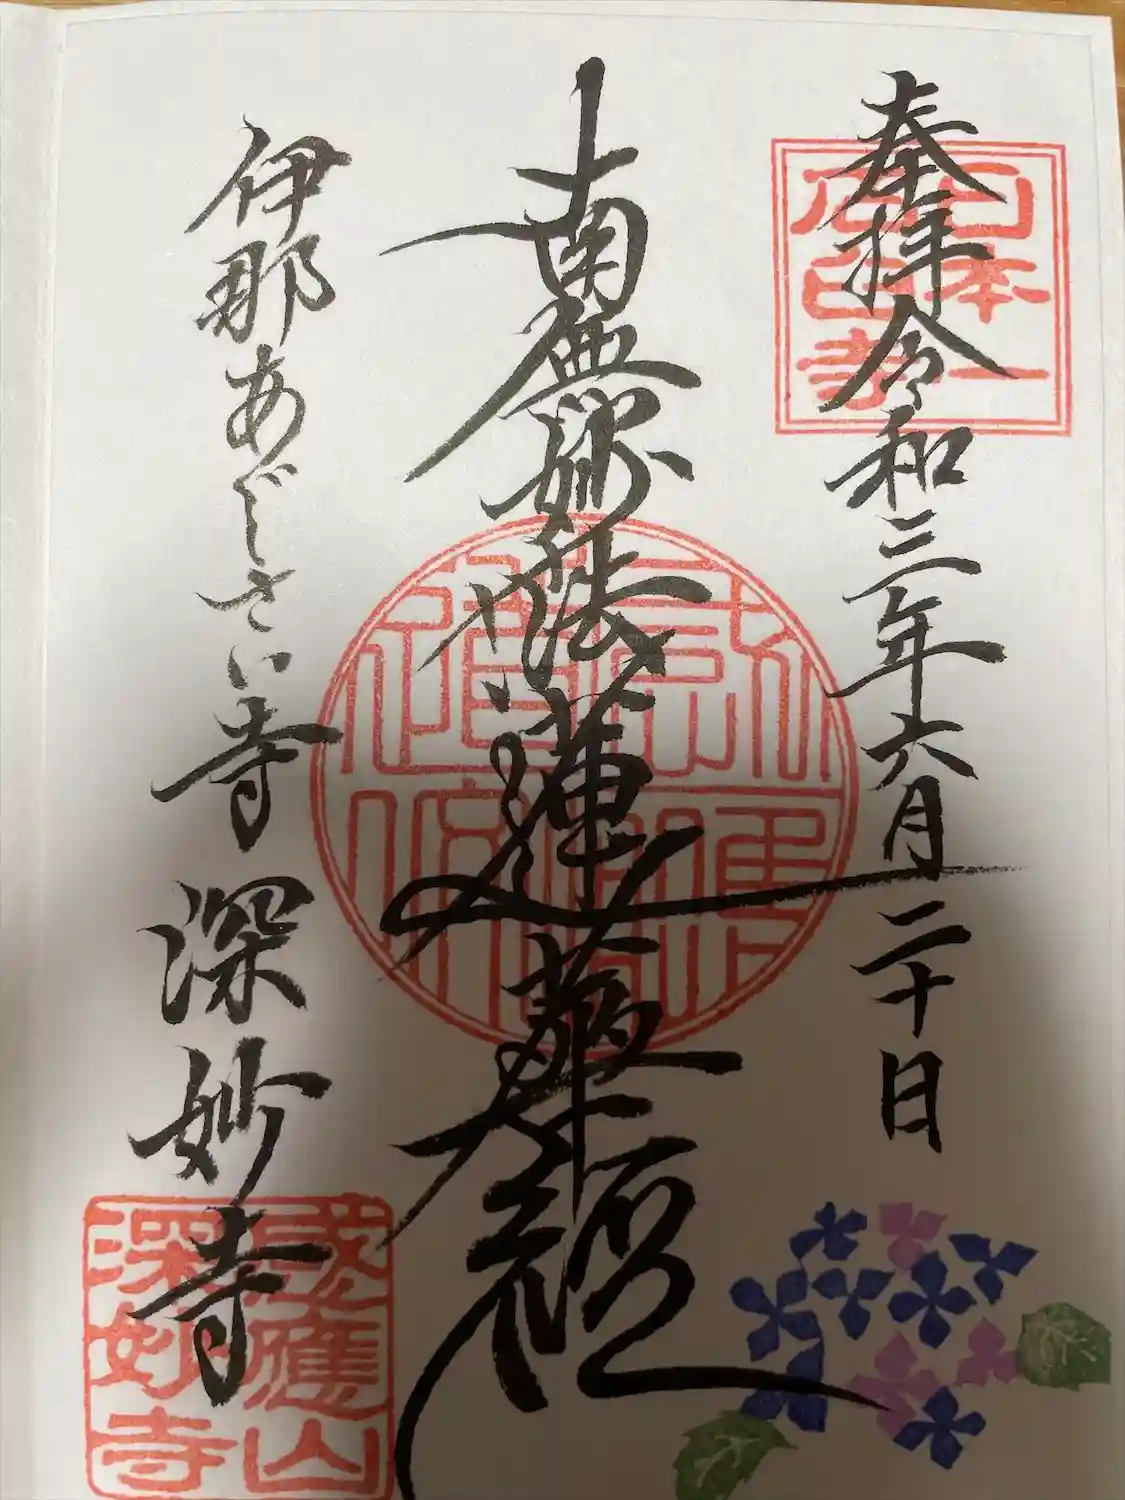 奉拝令和三年六月二十日
南無妙法蓮華経
伊那あじさい寺深妙寺
日本一
國應山
深妙寺